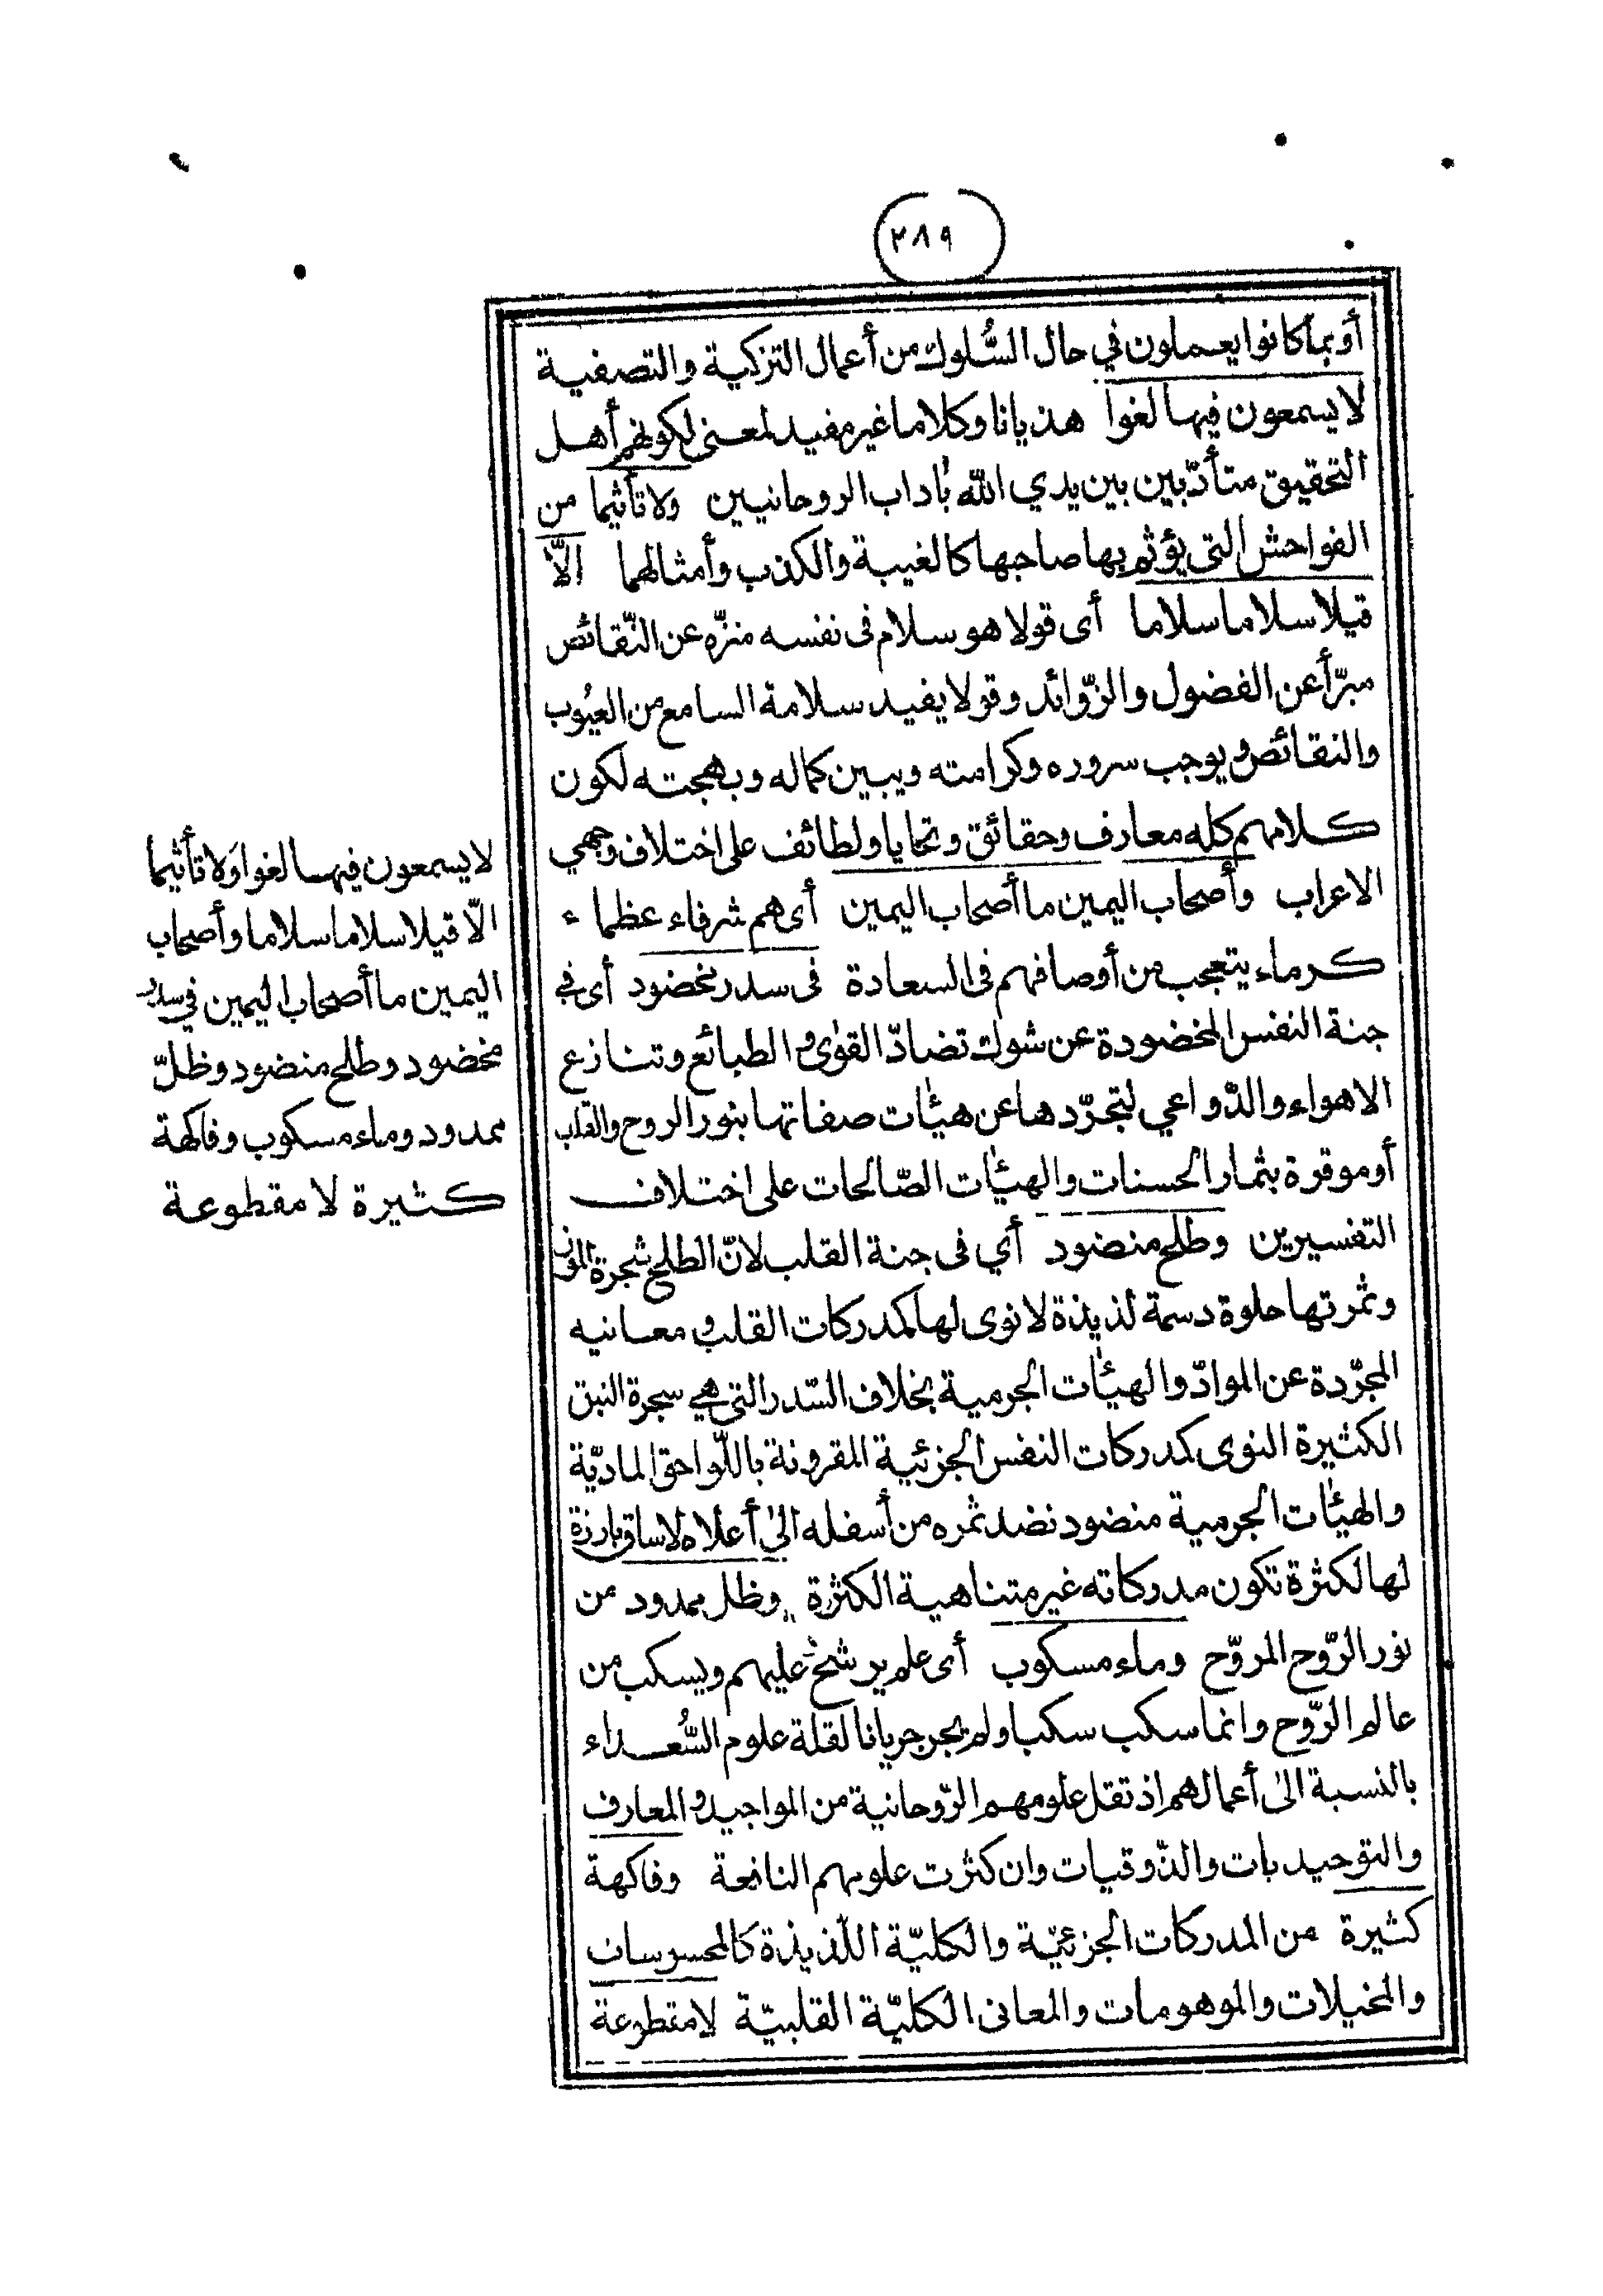 ٢٨٩
أو بما كانوا يعملون في حال السُّلوك من أعمال التزكية والتصفية
لا يسمعون فيها لغوا هذيانا وكلاما غير مفيد لمعنى لكونهم أهل
التحقيق متأدّبين بين يدي الله بآداب الروحانيين ولا تأثيما من
الفواحش التي يؤثم بها صاحبها كالغيبة والكذب وأمثالهما الاّ
قيلا سلاما سلاما أى قولا هو سلام فى نفسه منزّه عن النّقائص
مبرّأ عن الفضول والزّوائد وقولا يفيد سلامة السامع من العيُوب
والنقائص ويوجب سروره وكرامته ويبين كماله وبهجته لكون
كلامهم كله معارف وحقائق وتحايا ولطائف على اختلاف وجهي
الاعراب وأصحاب اليمين ما أصحاب اليمين أى هم شرفاء عظماء
كرماء يتعجب من أوصافهم فى السعادة فى سدر مخضود أى في
جنة النفس المخضودة عن شوك تضادّ القوٰى والطبائع وتنازع
الاهواء والدّواعي لتجرّدها عن هيئات صفاتها بنور الروح والقلب
أو موقرة بثمار الحسنات والهيئات الصّالحات على اختلاف
التفسيرين وطلح منضود أي فى جنة القلب لانّ الطلح شجرة الموز
وثمرتها حلوة دسمة لذيذة لا نوى لها كمدركات القلب ومعانيه
المجرّدة عن الموادّ والهيئات الجرمية بخلاف السّدر التي هي سجرة النبق
الكثيرة النوى كمدركات النفس الجزئية المقرونة باللّواحق الماديّة
والهيئات الجرمية منضود نضد ثمره من أسفله الىٰ أعلاه لا ساق بارزة
لها لكثرة تكون مدركاته غير متناهية الكثرة وظل ممدود من
نور الرّوح المروّح وماء مسكوب أى علم يرشح عليهم ويسكب من
عالم الرّوح وانما سكب سكبا ولم يجر جريانا لقلة علوم السُّعداء
بالنسبة الىٰ أعمالهم اذ تقل علومهم الرّوحانية من المواجيد والمعارف
والتوحيديات والذّوقيات وان كثرت علومهم النافعة وفاكهة
كثيرة من المدركات الجزئيّة والكليّة اللّذيذة كالمحسوسات
والمخيلات والموهومات والمعانى الكليّة القلبيّة لا مقطوعة
لا يسمعون فيها لغوا وَلا تأثيما
الاّ قيلا سلاما سلاما وأصحاب
اليمين ما أصحاب اليمين في سدر
مخضود وطلح منضود وظلّ
ممدود وماء مسكوب وفاكهة
كثيرة لا مقطوعة